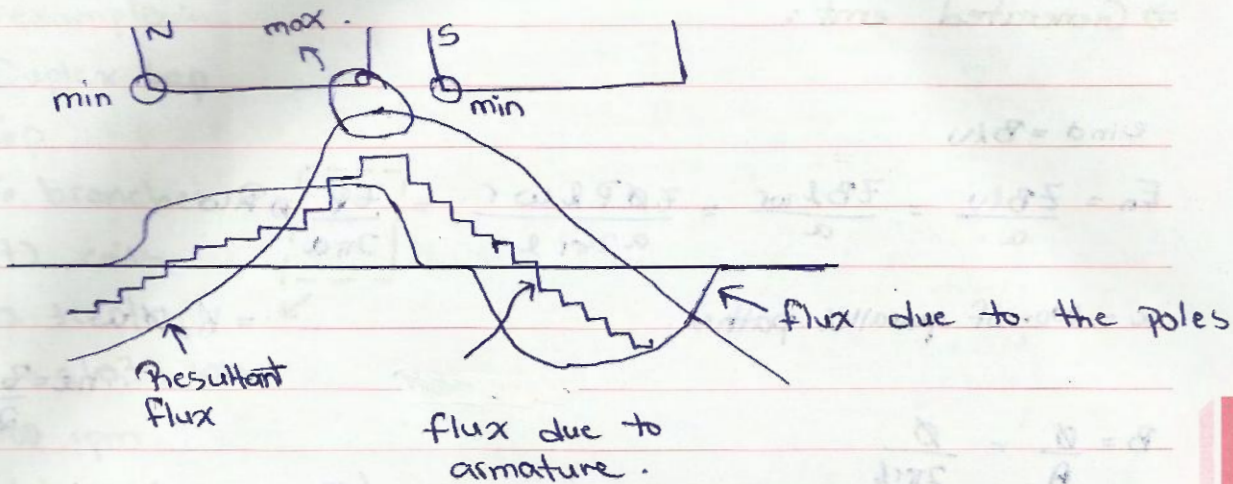 N
max.
S
min
min
flux due to the poles
Resultant
flux
flux due to
armature.